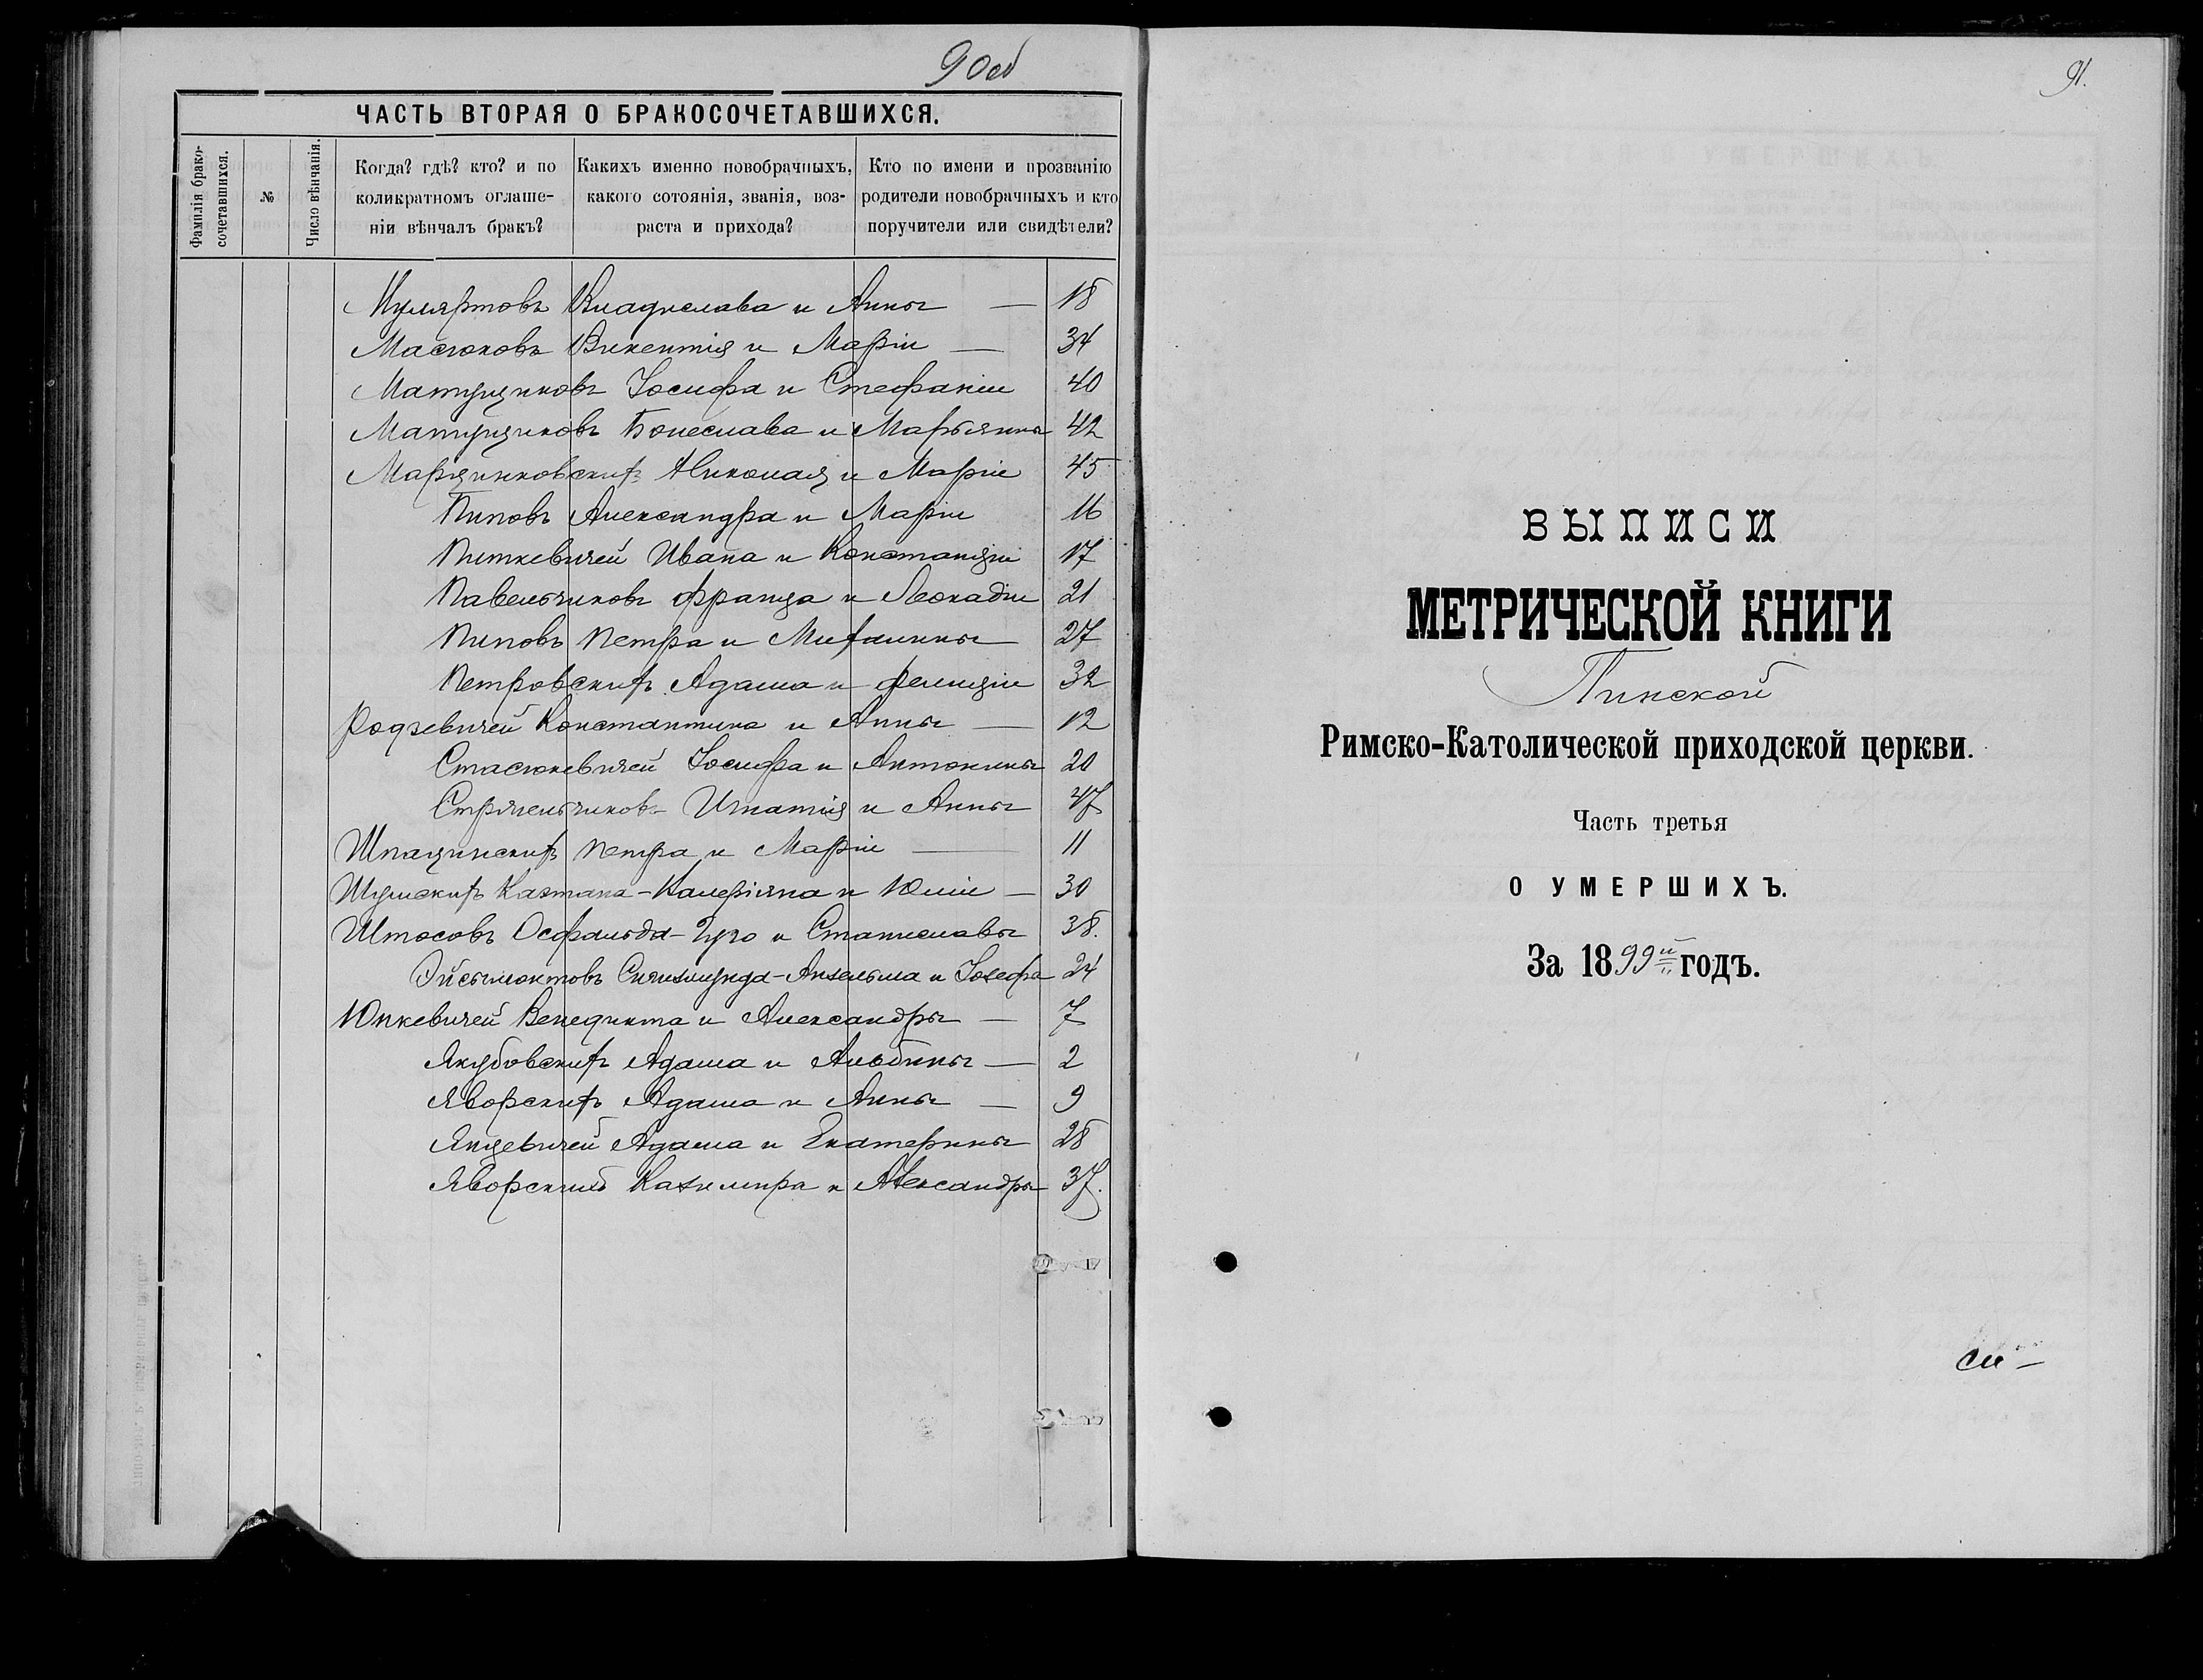 90об
ЧАСТЬ ВТОРАЯ О БРАКОСОЧЕТАВШИХСЯ.
Фамилія брако-
сочетавшихся.
№
Число вѣнчанія.
Когда? гдѣ? кто? и по
коликратномъ оглаше-
ніи вѣнчалъ бракъ?
Какихъ именно новобрачныхъ,
какого сотоянія, званія, воз-
раста и прихода?
Кто по имени и прозванію
родители новобрачныхъ и кто
поручители или свидѣтели?
Мулярховъ Владислава и Анны — 18
Масюковъ Викентія и Маріи — 34
Матущиковъ Іосифа и Стефаніи 40
Матущиковъ Болеслава и Марьянны 42
Марцинковскихъ Николая и Маріи 45
Пиповъ Александра и Маріи 16
Питкевичей Ивана и Констанціи 17
Павельчиковъ Франца и Леокадіи 21
Пиповъ Петра и Михалины 27
Петровскихъ Адама и Фелиціи 32
Родзевичей Константина и Анны — 12
Стасюкевичей Іосифа и Антонины 20
Стрѣльчиковъ Игнатія и Анны 47
Шпацинскихъ Петра и Маріи — 11
Шумскихъ Каэтана-Валеріяна и Юліи — 30
Штосовъ Осфальда-Гуго и Станиславы 38.
Эйсымонтовъ Сигизмунда-Анзельма и Іозефы 24
Юнкевичей Венедикта и Александры — 7
Якубовскихъ Адама и Альбины — 2
Яворскихъ Адама и Анны — 9
Янцевичей Адама и Екатерины 28
Яворскихъ Казимира и Александры 37.
91.
ВЫПИСИ
МЕТРИЧЕСКОЙ КНИГИ
Пинской
Римско-Католической приходской церкви.
Часть третья
О УМЕРШИХЪ.
За 1899й годъ.